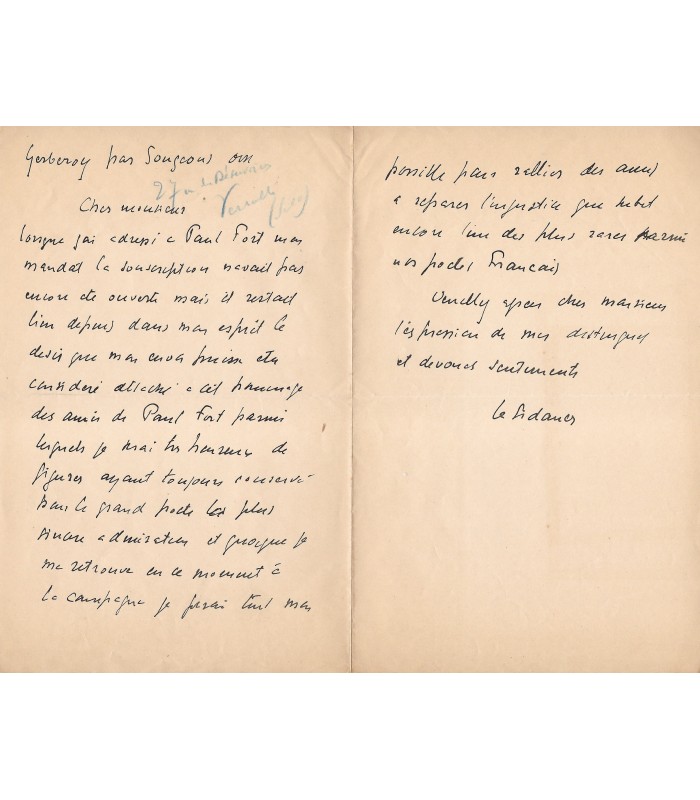 Gerberoy par Songeons Oise
27 rue de
Versailles
Cher monsieur
lorsque j'ai adressé à Paul Fort mon
mandat la souscription n'avait pas
encore été ouverte mais il restait
bien depuis dans mon esprit le
désir que mon envoi puisse être
considéré attaché a cet hommage
des amis de Paul Fort parmi
lesquels je serai très heureux de
figurer ayant toujours conservé
pour le grand poète la plus
sincère admiration et quoique je
me retrouve en ce moment à
la campagne je ferai tout mon
possible pour rallier des amis
a réparer l'injustice que subit
encore l'un des plus rares parmi
nos poètes Français
Veuillez agréer cher monsieur
l'expression de mes distingués
et dévoués sentiments
Le Sidaner